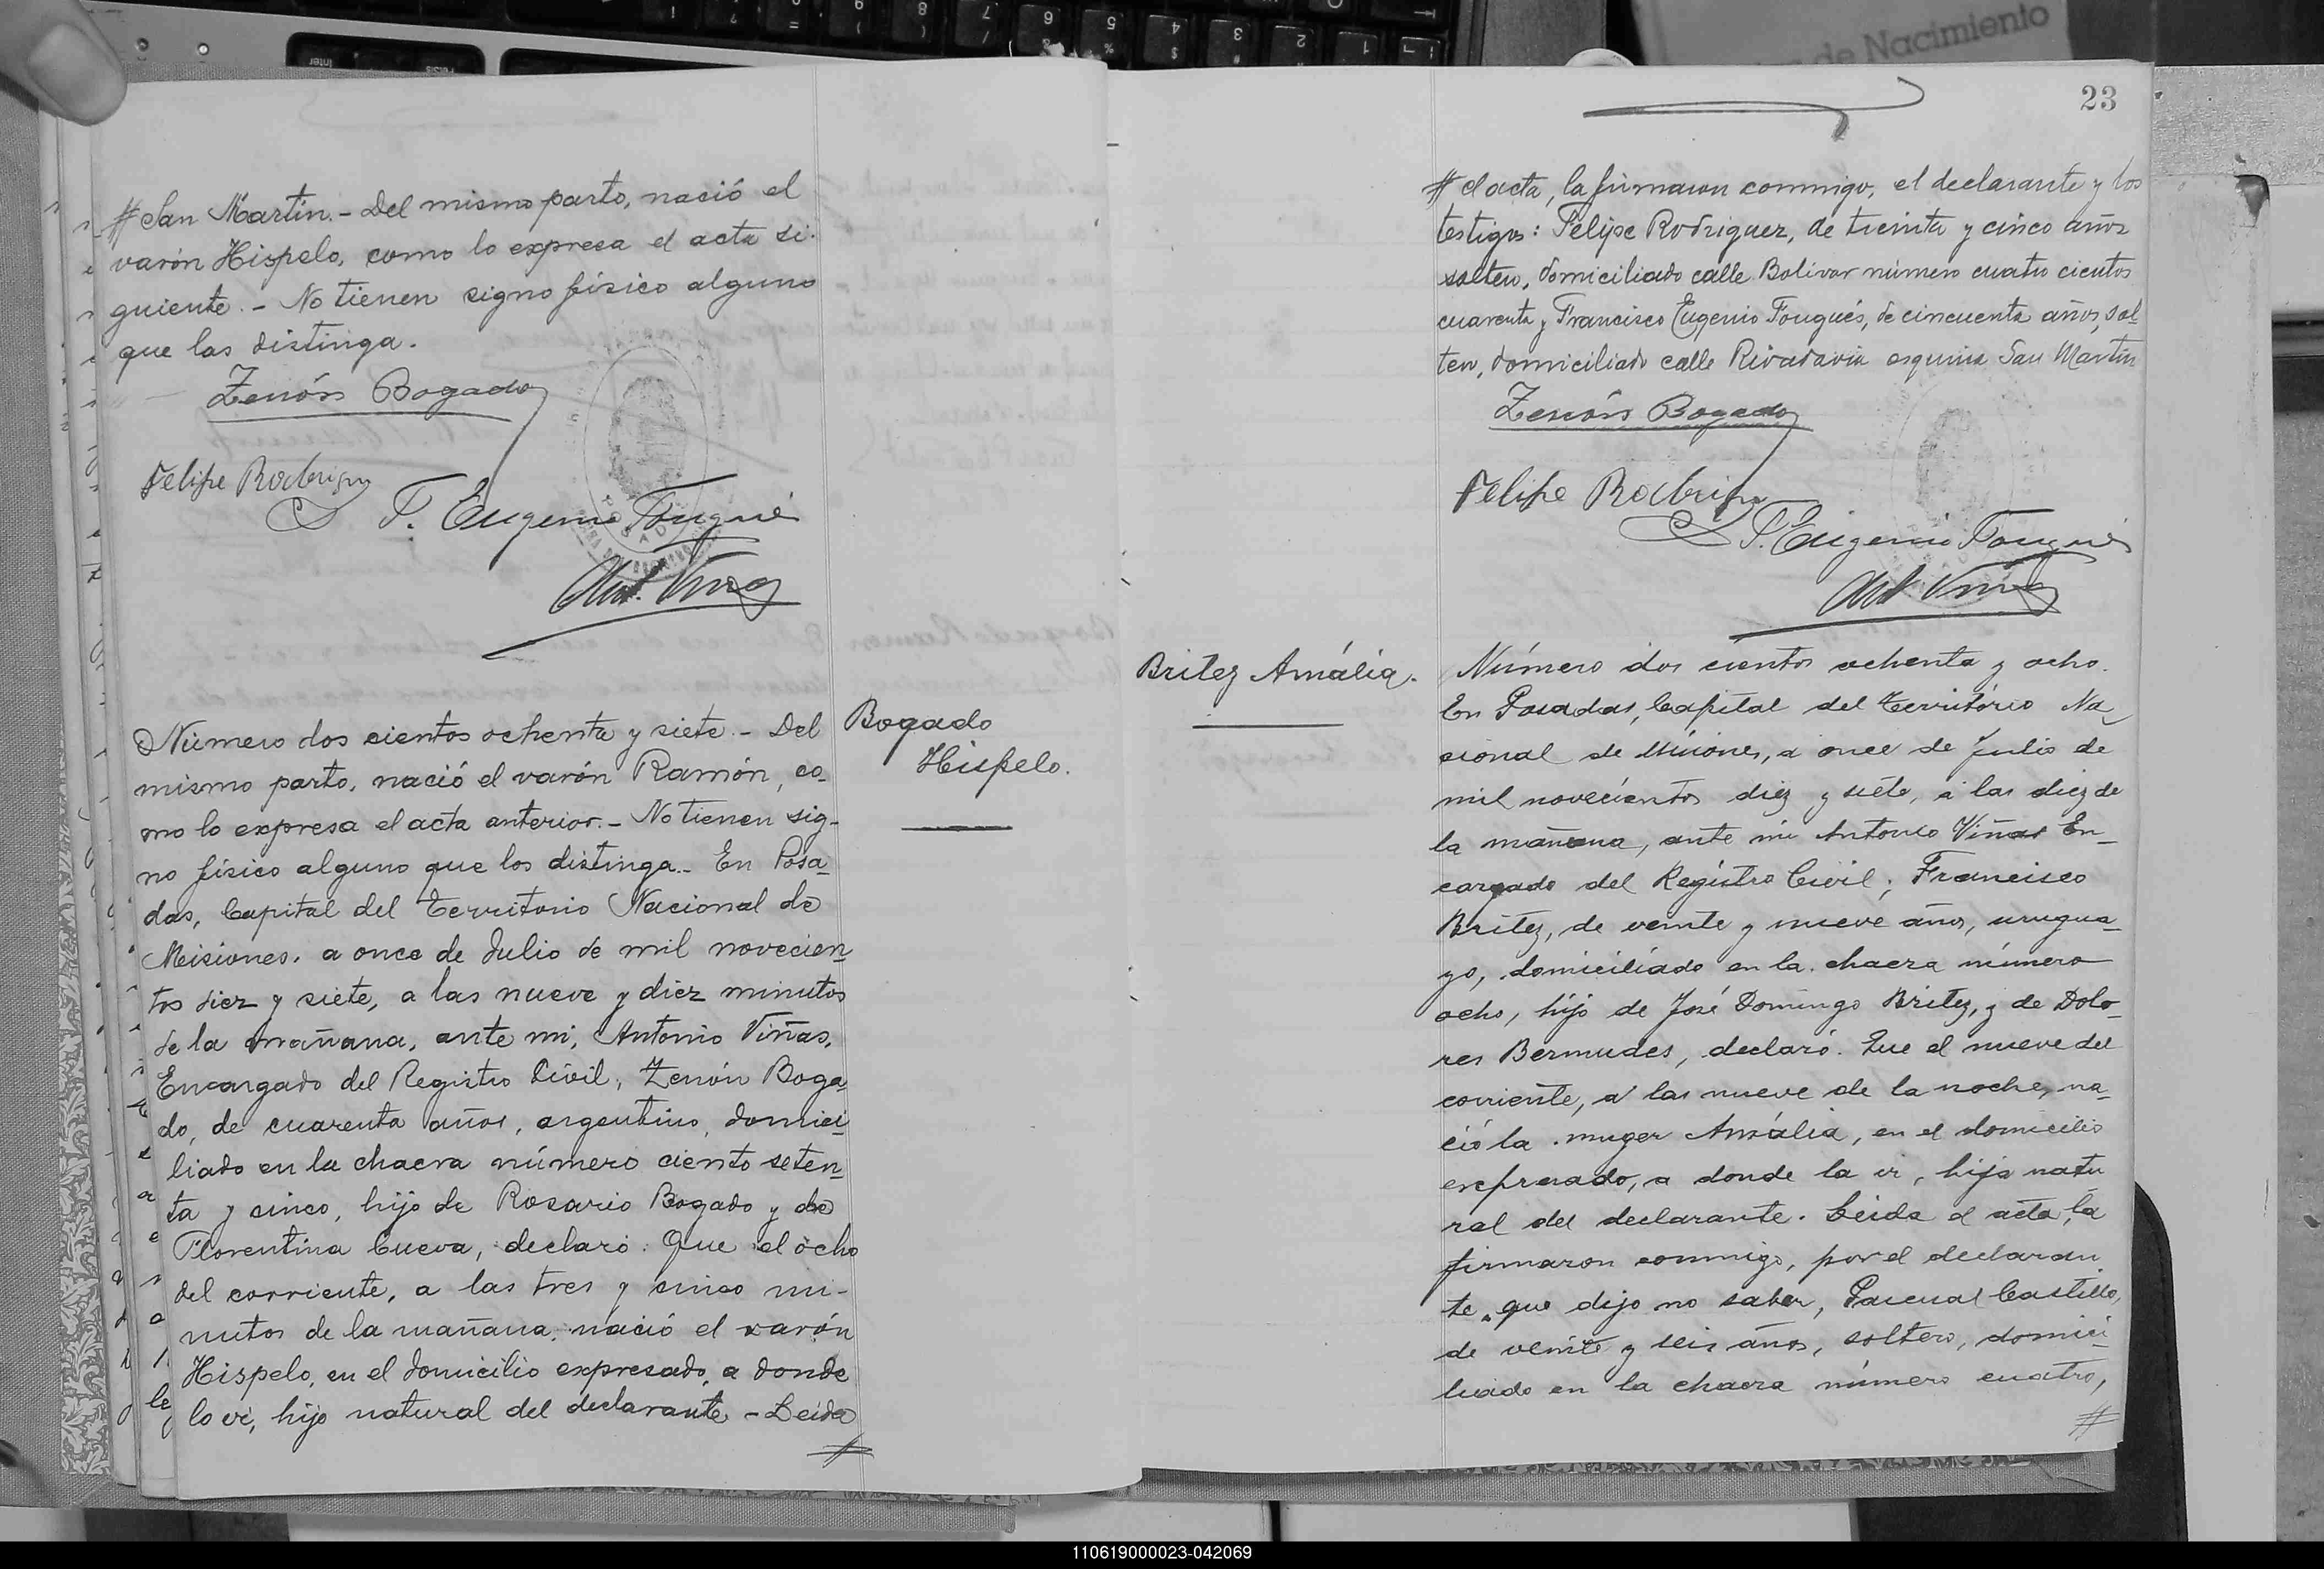 # San Martin.- Del mismo parto, nació el
varón Hispelo, como lo expresa el acta si-
guiente.- No tienen signo físico alguno
que las distinga.
Zenón Bogado
Felipe Rodriguez
F. Eugenio Fougué
Ant. Viñas
Número dos cientos ochenta y siete.- Del
mismo parto, nació el varón Ramón, co-
mo lo expresa el acta anterior.- No tienen sig-
no físico alguno que los distinga.- En Posa-
das, Capital del Territorio Nacional de
Misiones, a once de Julio de mil novecien-
tos diez y siete, a las nueve y diez minutos
de la mañana, ante mi, Antonio Viñas,
Encargado del Registro Civil, Zenón Boga-
do, de cuarenta años, argentino, domici-
liado en la chacra número ciento seten-
ta y cinco, hijo de Rosario Bogado y de
Florentina Cueva, declaró: Que el ocho
del corriente, a las tres y cinco mi-
nutos de la mañana, nació el varón
Hispelo, en el domicilio expresado, a donde
lo vi, hijo natural del declarante.- Leida
#
Bogado
Hispelo.
23
# el acta, la firmaron conmigo, el declarante y los
testigos: Felipe Rodriguez, de treinta y cinco años
soltero, domiciliado calle Bolivar número cuatro cientos
cuarenta y Francisco Eugenio Fougués, de cincuenta años, sol-
tero, domiciliado calle Rivadavia esquina San Martin
Zenón Bogado
Felipe Rodriguez
F. Eugenio Fougué
Ant Viñas
Britez Amália.
Número dos cientos ochenta y ocho.
En Posadas, Capital del Território Na-
cional de Misiones, a once de Julio de
mil novecientos diez y siete, á las diez de
la mañana, ante mi Antonio Viñas En-
cargado del Registro Civil; Francisco
Britez, de veinte y nueve años, urugua-
yo, domiciliado en la chacra número
ocho, hijo de José Domingo Britez, y de Dolo-
res Bermudes, declaró. Que el nueve del
corriente, a las nueve de la noche, na-
ció la muger Amália, en el domicilio
expresado, a donde la vi, hija natu
ral del declarante. Leida el acta, la
firmaron conmigo, por el declaran
te que dijo no saber, Pascual Castillo,
de veinte y seis años, soltero, domici-
liado en la chacra número cuatro,
#
de Nacimiento
110619000023-042069